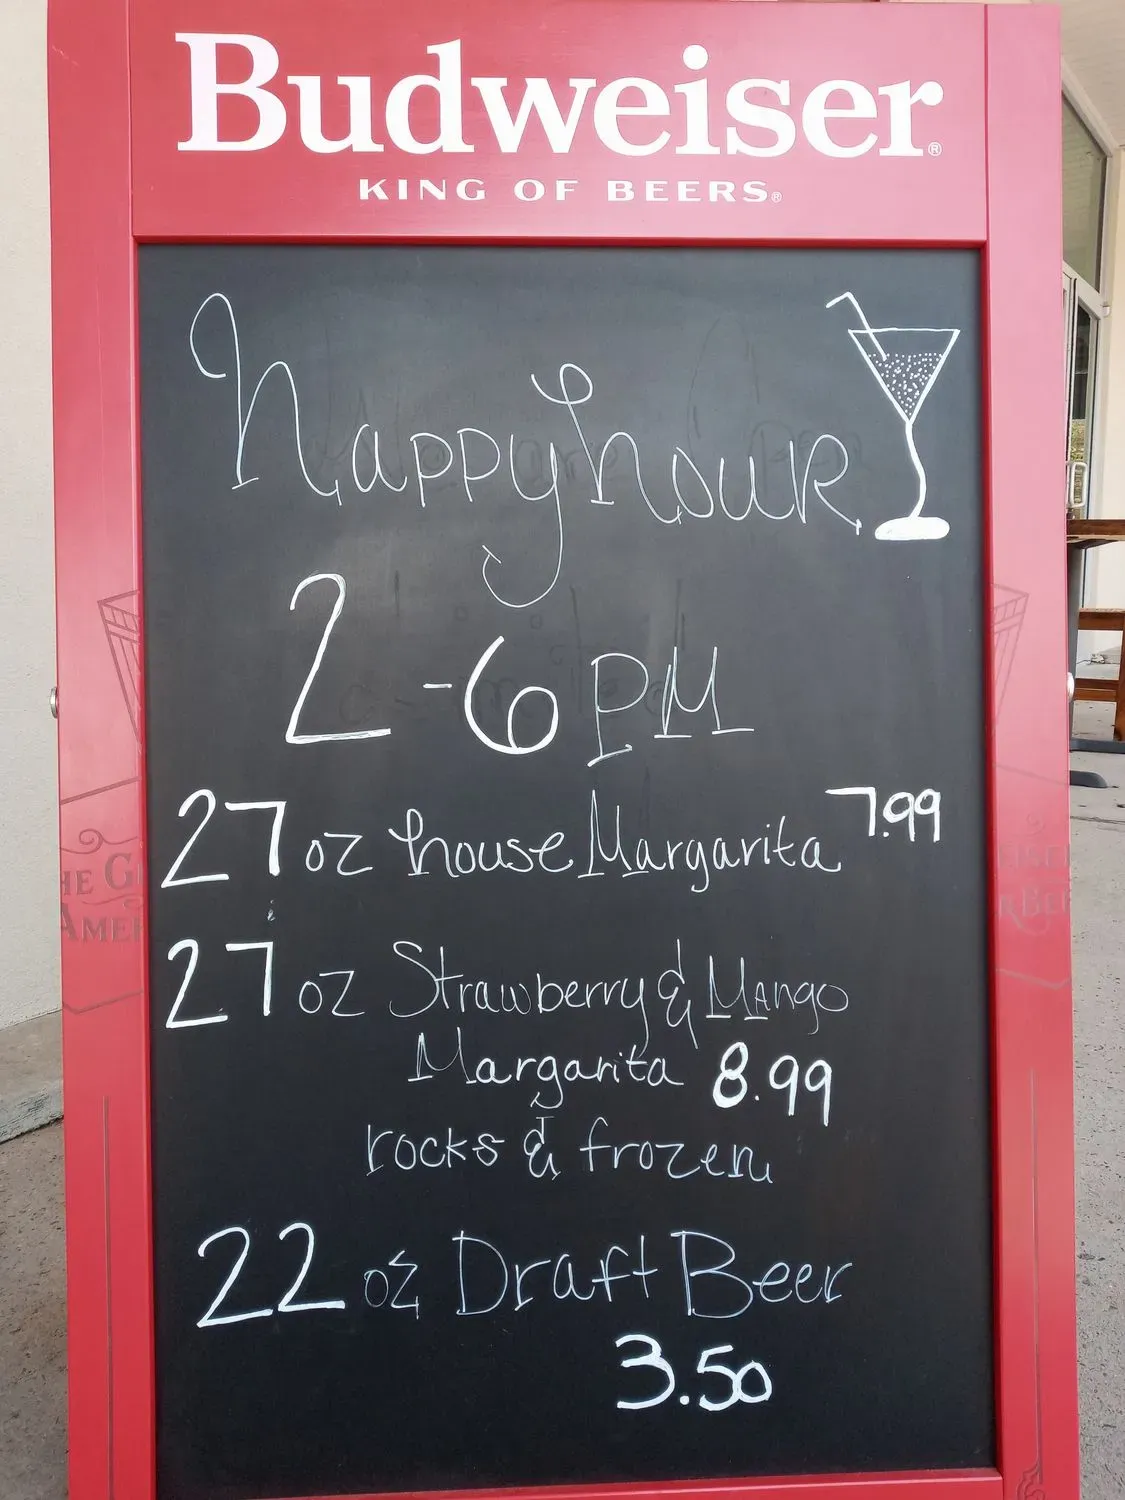 Budweiser®
KING OF BEERS®
Happy hour
2-6 PM
27 oz house Margarita 7.99
27 oz Strawberry & Mango
Margarita 8.99
rocks & frozen
22 oz Draft Beer
3.50
HE G
AMER